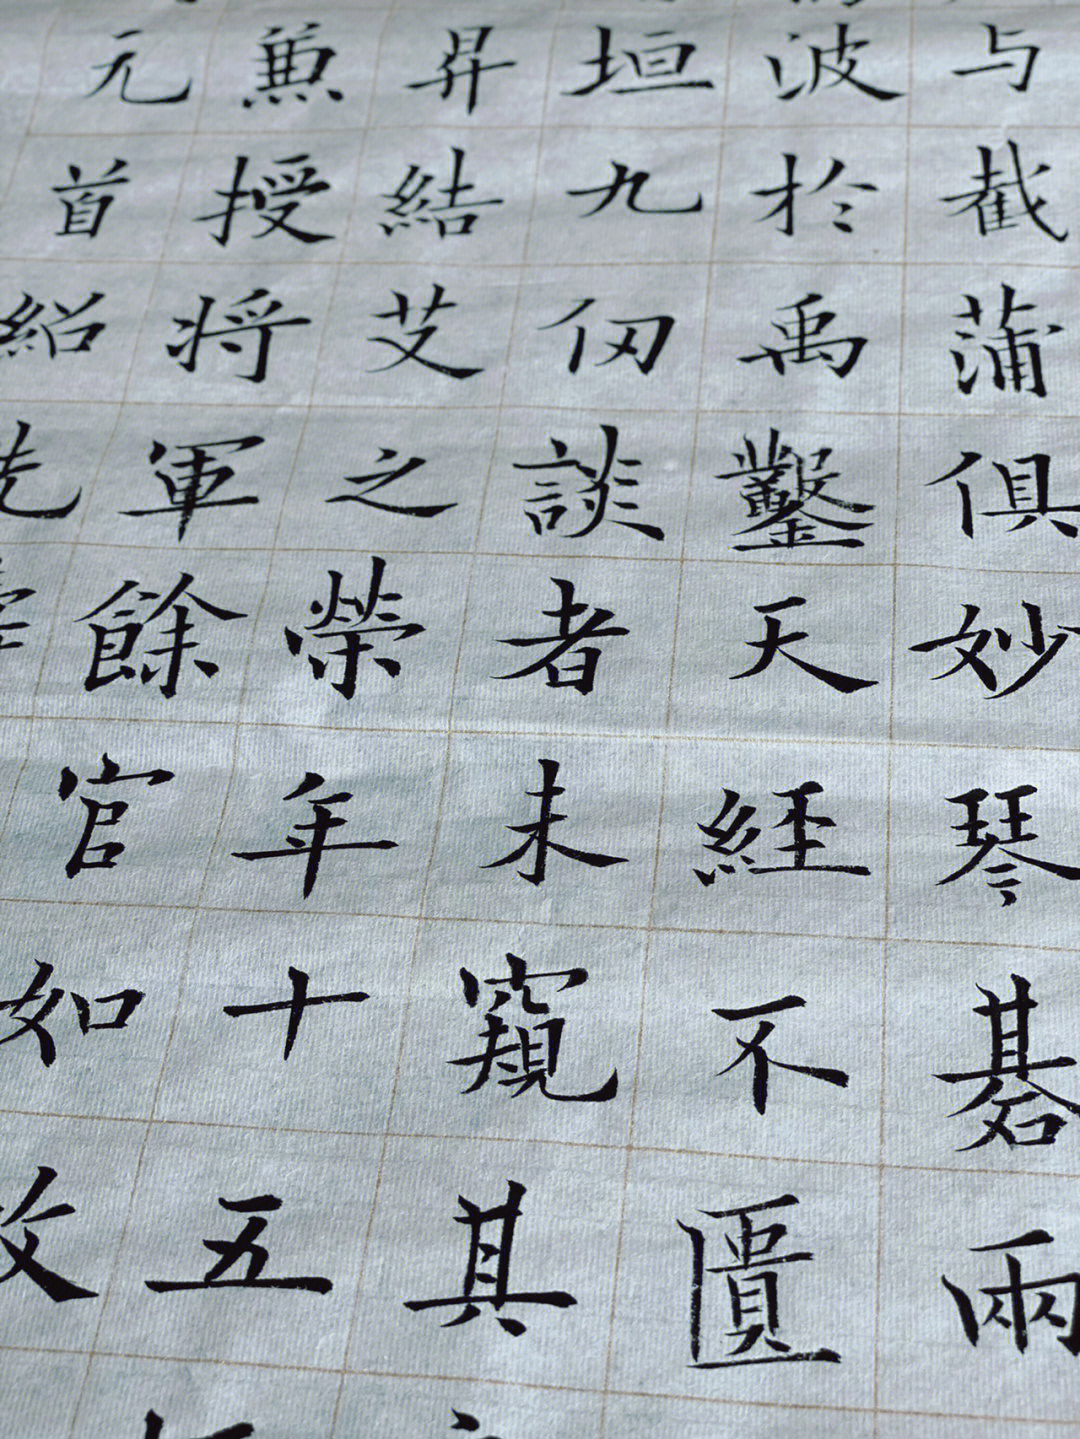 与截蒲俱妙琴碁兩
波於禹鑿天經不匱
垣九仞談者未窺其
昇結艾之榮年十五
兼授將軍餘官如
元首紹